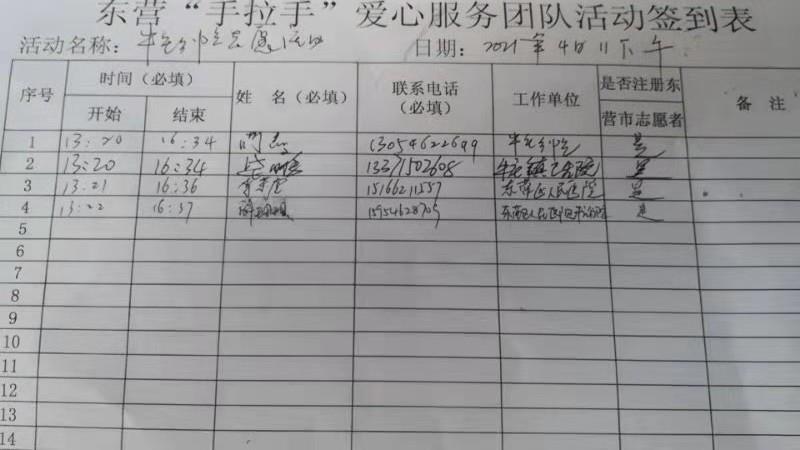 东营“手拉手”爱心服务团队活动签到表
活动名称: 牛庄 活动 日期: 2021年4月11下午
序号 时间（必填） 姓 名（必填） 联系电话（必填） 工作单位 是否注册东营市志愿者 备 注
开始 结束
1 13:20 16:34 13054622699 牛庄 是
2 13:20 16:34 13371502608 牛庄镇 院 是
3 13:21 16:36 15166211557 东营区人民医院 是
4 13:22 16:37 15954628709 东营区人民医院 是
5
6
7
8
9
10
11
12
13
14